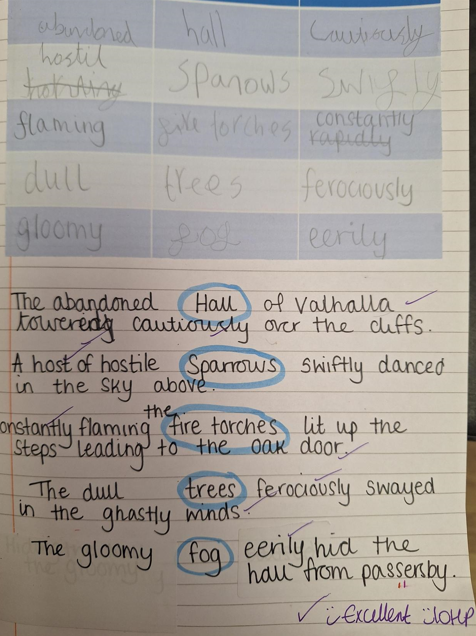 abandoned hall Cautiously
hostil
Sparrows Swiftly
flaming fire torches constantly
rapidly
dull trees ferociously
gloomy fog eerily
The abandoned Hall of Valhalla
towered cautiously over the cliffs.
A host of hostile Sparrows swiftly danced
in the sky above.
the
onstantly flaming fire torches lit up the
Steps leading to the oak door.
The dull trees ferociously swayed
in the ghastly winds.
The gloomy fog eerily hid the
hall from passersby.
Excellent 10HP